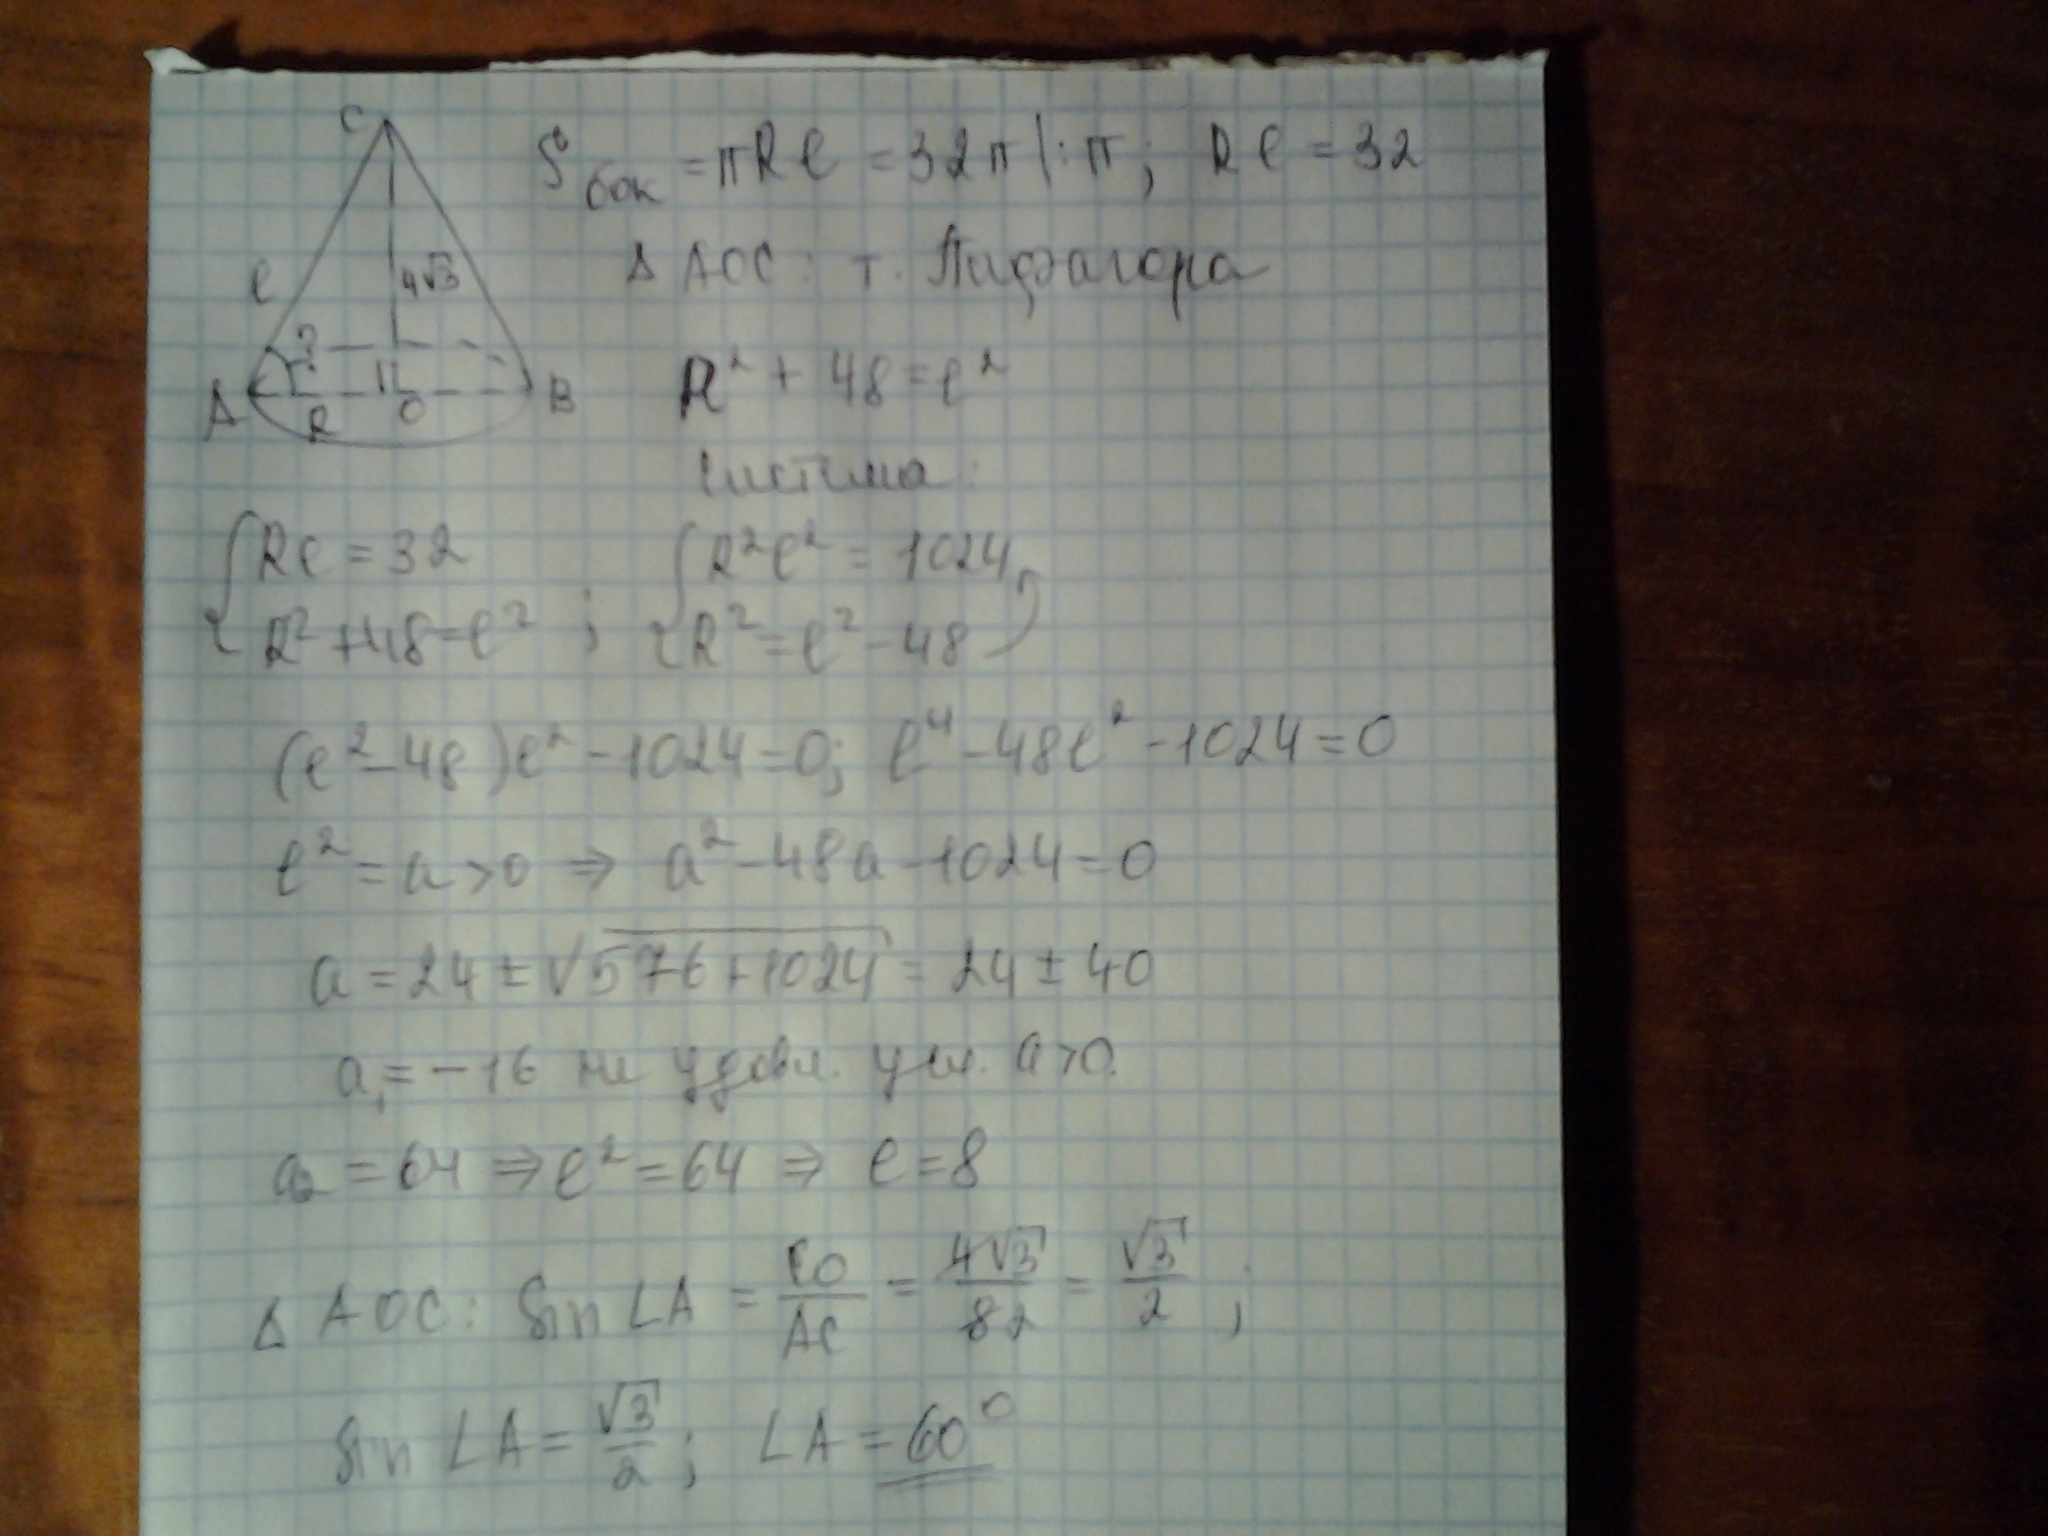 C
l
4√3
?
A
R
O
B
Sбок = πRl = 32π |:π; Rl = 32
Δ AOC: т. Пифагора
R² + 48 = l²
Система:
{ Rl = 32
R² + 48 = l² ;
{ R²l² = 1024
R² = l² - 48
(l² - 48)l² - 1024 = 0; l⁴ - 48l² - 1024 = 0
l² = a > 0 ⇒ a² - 48a - 1024 = 0
a = 24 ± √576 + 1024 = 24 ± 40
a₁ = -16 не удовл. усл. a > 0.
a₂ = 64 ⇒ l² = 64 ⇒ l = 8
Δ AOC: Sin ∠A = CO/AC = 4√3/82 = √3/2 ;
Sin ∠A = √3/2 ; ∠A = 60°